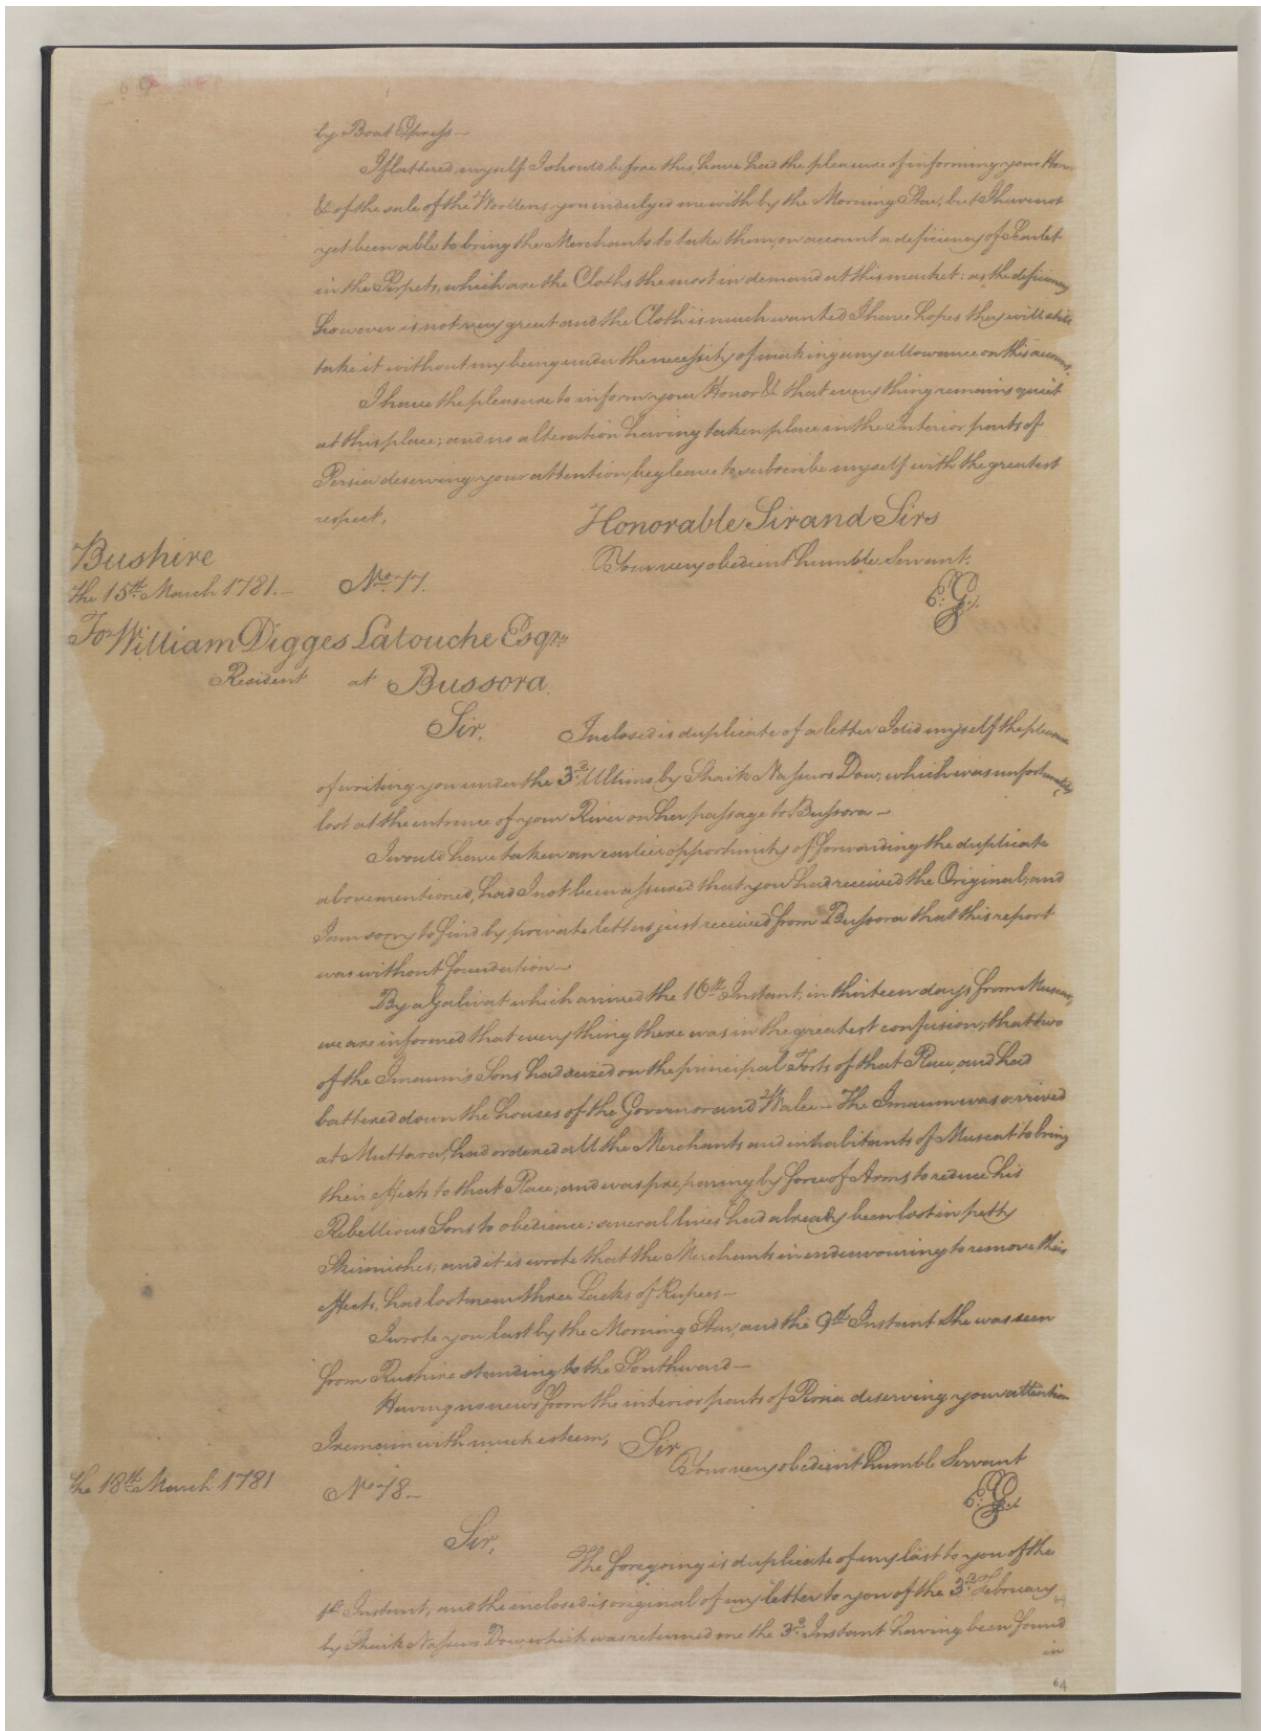 by Boat Express —
I flattered myself I should before this, have had the pleasure of informing your Honor
&ca of the sale of the Woollens you indulged me with by the Morning Star, but I have not
yet been able to bring the Merchants to take them, on account a deficiency of Scarlet
in the Perpets, which are the Cloths the most in demand at this market: as the deficiency
however is not very great and the Cloth is much wanted I have hopes they will still
take it without my being under the necessity of making any allowance on this account.
I have the pleasure to inform your Honor &ca that every thing remains quiet
at this place; and no alteration having taken place in the Interior parts of
Persia deserving your attention, beg leave to subscribe myself with the greatest
respect,
Honorable Sir and Sirs
Your very obedient humble Servant.
Bushire
the 15th. March 1781. —
No. 77.
E: G:
To William Digges Latouche Esqr.
Resident at Bussora.
Sir,
Inclosed is duplicate of a letter I did myself the pleasure
of writing you under the 3d. Ultimo by Shaik Nassurs Dow, which was unfortunately
lost at the entrence of your River on her passage to Bussora —
I would have taken an earlier opportunity of forwarding the duplicate
abovementioned, had I not been assured that you had received the Original; and
I am sorry to find by private letters just received from Bussora that this report
was without foundation —
By a Galivat which arrived the 10th Instant, in thirteen days from Muscat,
we are informed that every thing there was in the greatest confusion, that two
of the Imaum's Sons had seized on the principal Forts of that Place, and had
battered down the houses of the Governor and Walee — The Imaum was arrived
at Muttara, had ordered all the Merchants and inhabitants of Muscat to bring
their effects to that Place; and was preparing by force of Arms to reduce his
Rebellious Sons to obedience: several lives had already been lost in petty
Skirmishes, and it is wrote that the Merchants in endeavouring to remove their
effects, had lost near three Lacks of Rupees —
I wrote you last by the Morning Star, and the 9th Instant she was seen
from Bushire standing to the Southward —
Having no news from the interior parts of Persia deserving your attention
I remain with much esteem,
Sir,
Your very obedient humble Servant
the 18th. March 1781
No. 78 —
E: G:
Sir,
The foregoing is duplicate of my last to you of the
Instant, and the inclosed is original of my letter to you of the 3d. February
by Shaik Nassurs Dow, which was returned me the 3d. Instant having been found
in
64